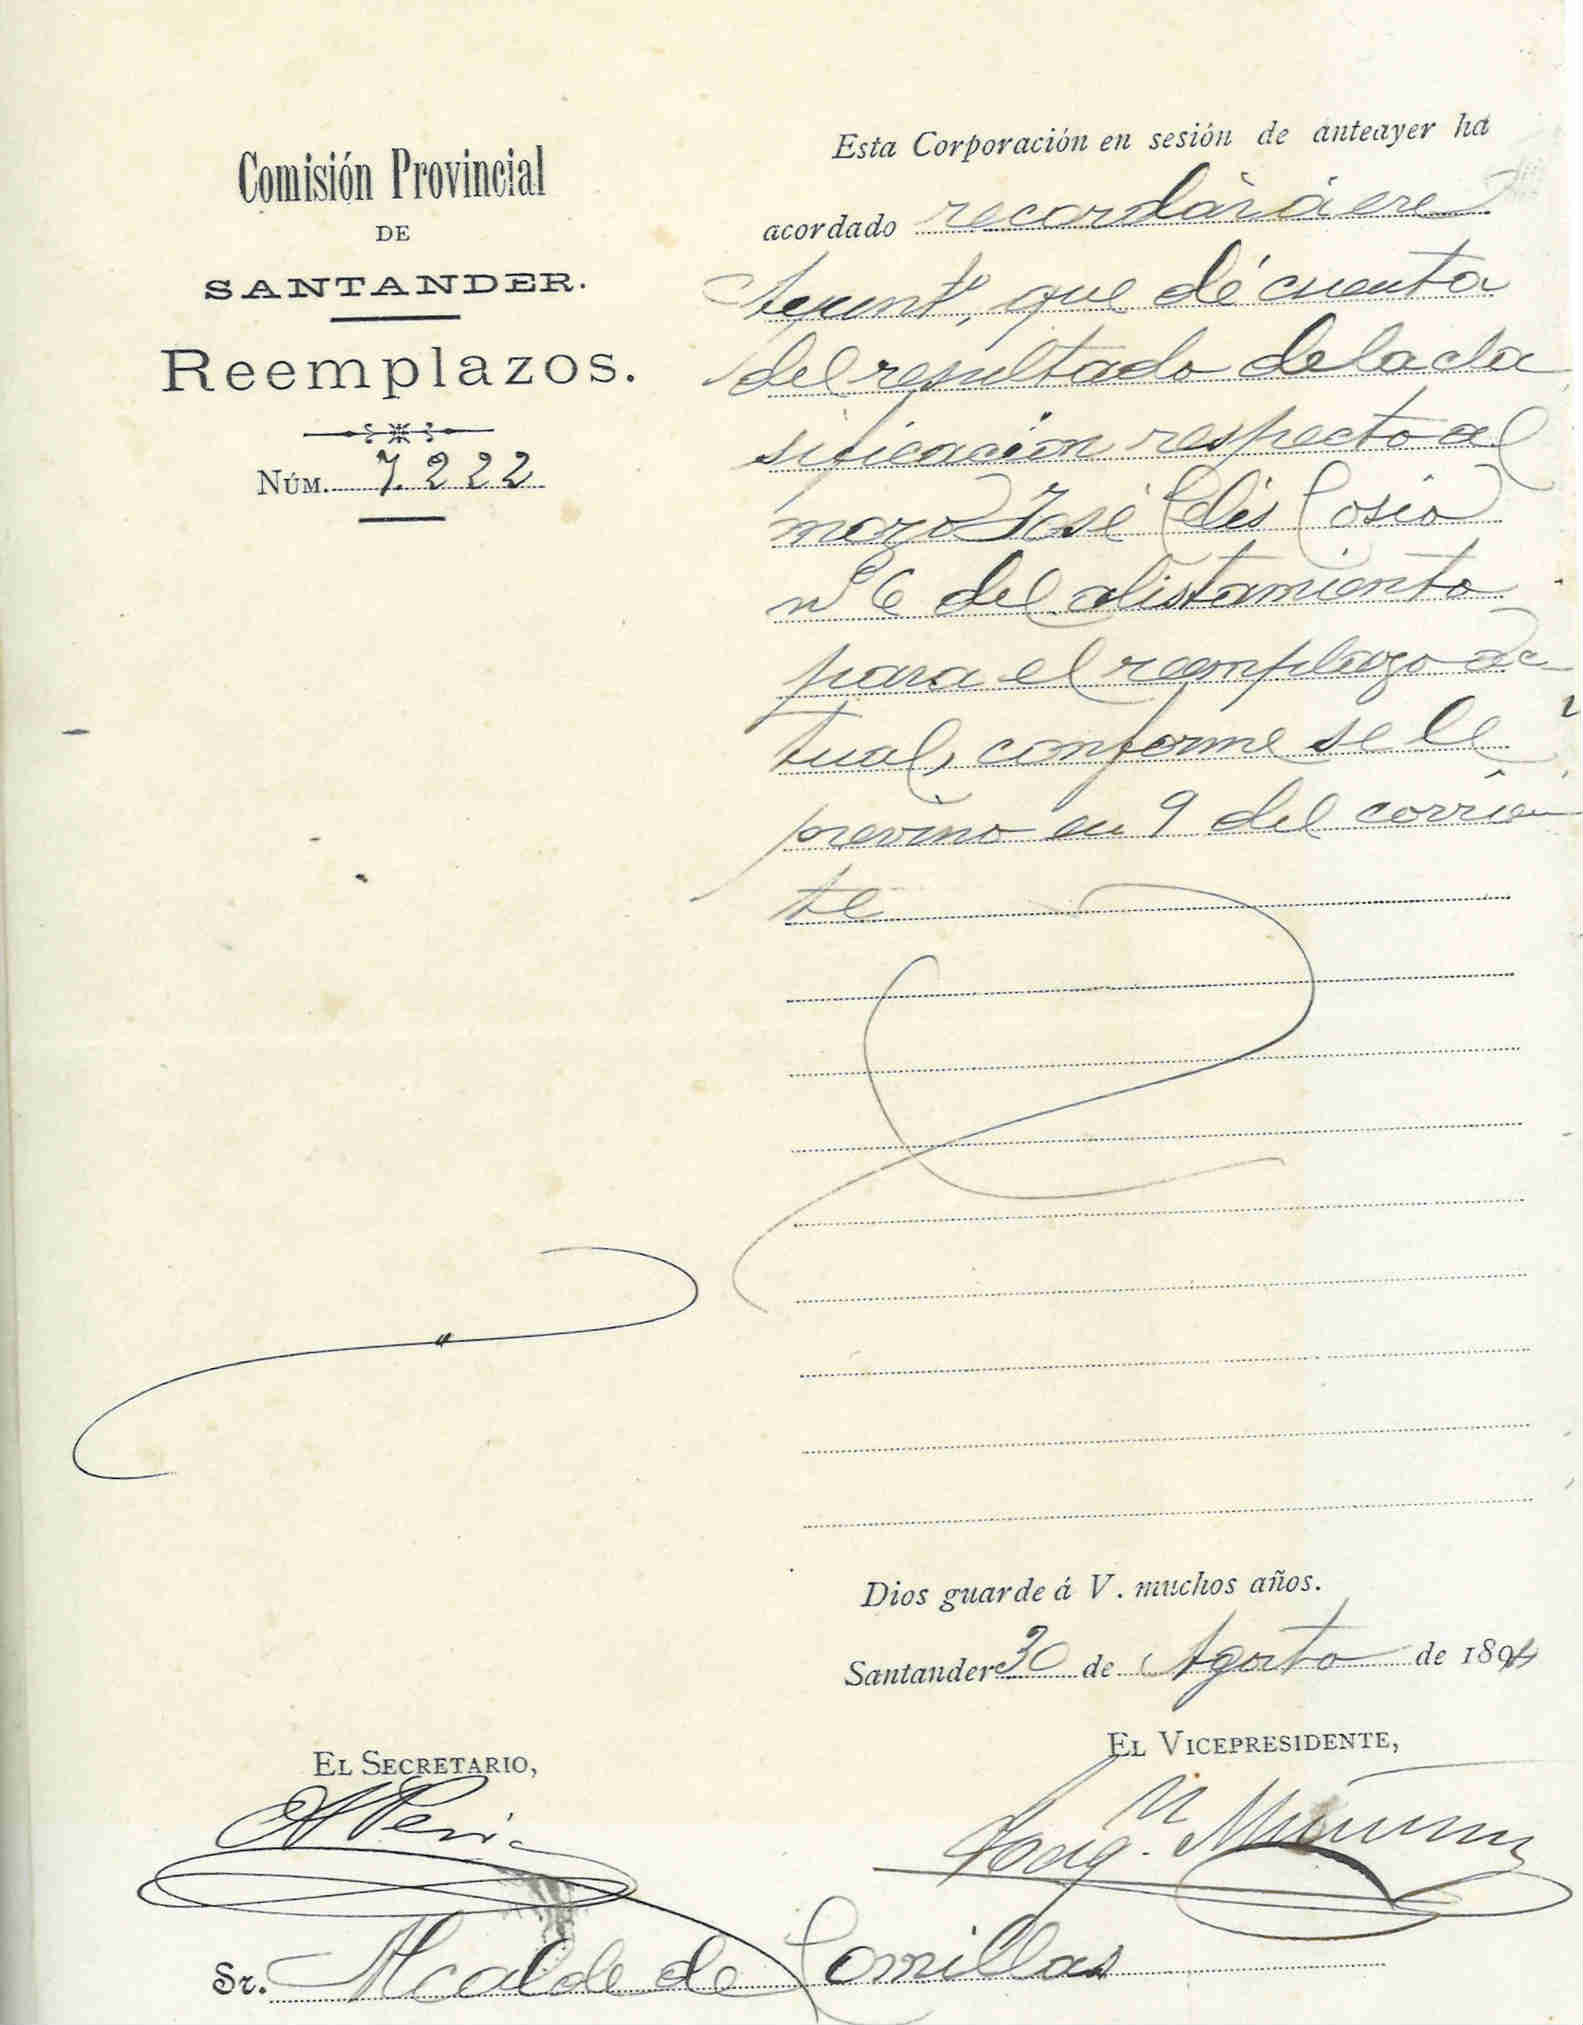 Comisión Provincial
DE
SANTANDER.
Reemplazos.
NÚM. 7.222
Esta Corporación en sesión de anteayer ha
acordado recordar á ese
Ayuntº, que dé cuenta
del resultado de la cla
sificacion respecto al
mozo José Celis Cosio
nº 6 del alistamiento
para el reemplazo ac-
tual, conforme se le
previno en 9 del corrien
te
Dios guarde á V. muchos años.
Santander 30 de Agosto de 1894
EL SECRETARIO,
EL VICEPRESIDENTE,
Sr. Alcalde de Comillas